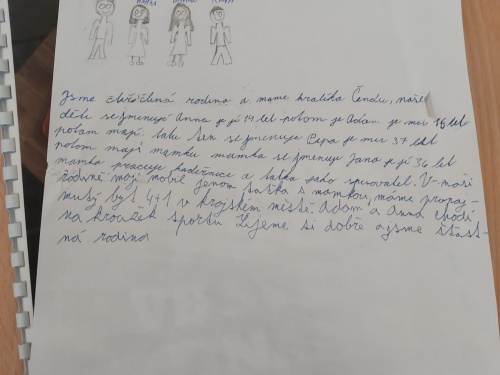 Jsme čtyřčlená rodina a máme králíka Čendu, naše
děti se jmenují Anna je jí 14 let potom je Adam je mu 16 let
potom mají tatu ten se jmenuje Pepa je mu 37 let
potom mají mamku mamka se jmenuje Jana je jí 36 let
mamka pracuje kadeřnice a taťka jako spisovatel. V naší
rodině mají mobil jenom taťka s mamkou, máme pronaj-
mutý byt 4+1 v krajském městě. Adam a Anna chodí
na kroužek sportu Žijeme si dobře a jsme šťast-
ná rodina